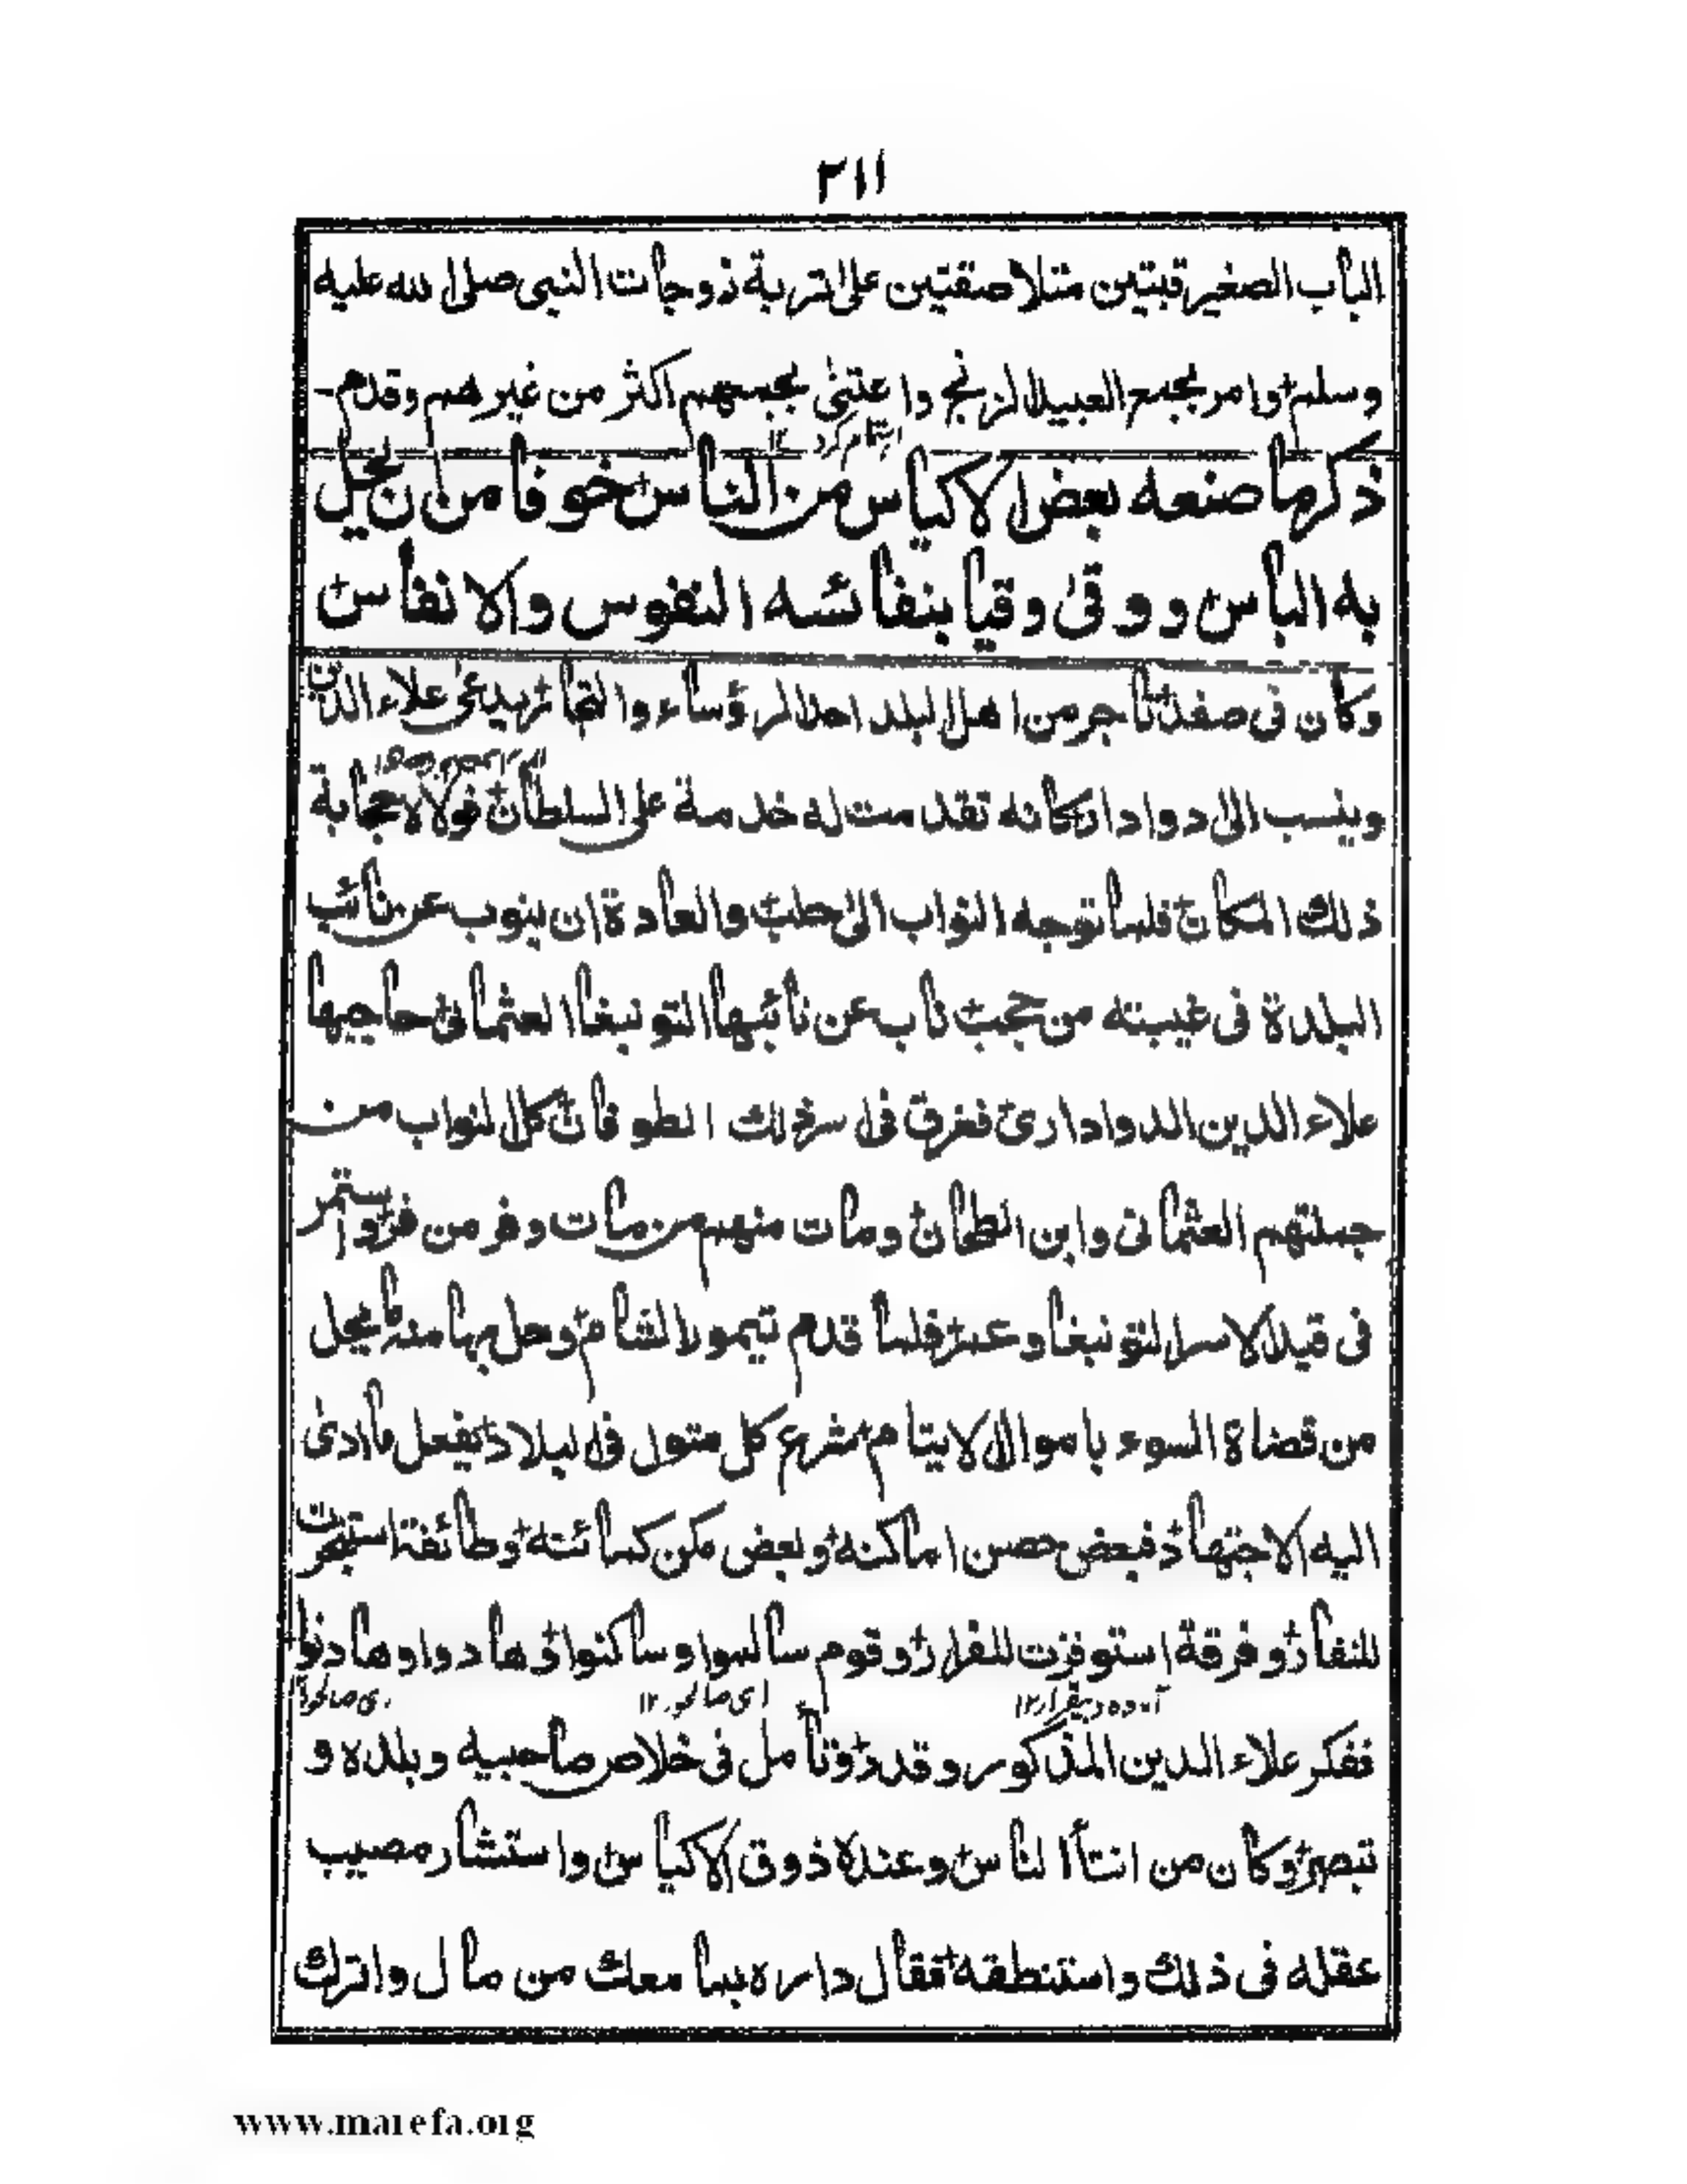 ٣١١
الباب الصغير قبتين متلاصقتين على تربة زوجات النبى صلى الله عليه
وسلم وامر بجمع العبيد الزنج واعتنى بجمعهم اكثر من غيرهم وقدم
ذكر ما صنعه بعض الاكياس من الناس خوفا من ان يحل
به الباس ووقى وقيا بنفائسه النفوس والانفاس
وكان فى صفد تاجر من اهل البلد احد الرؤساء والتجار يدعى علاء الدين
وينسب الى دوادار كانه تقدمت له خدمة على السلطان فولاه حجابة
ذلك المكان فلما توجه النواب الى حلب والعادة ان ينوب عن نائب
البلدة فى غيبته من حجب ناب عن نائبها التونبغا العثمانى حاجبها
علاء الدين الدوادارى فغرق فى سر ذلك الطوفان كل النواب من
جملتهم العثمانى وابن الطحان ومات منهم من مات وفر من فر واستمر
فى قيد الاسر التونبغا وعمر فلما قدم تيمور الشام وحل بها منه ما يحل
من قضاة السوء باموال الايتام شرع كل متول فى البلاد يفعل ما ادى
اليه الاجتهاد فبعض حصن اماكنه وبعض مكن كمائنه وطائفة استمرت
للنفار وفرقة استوفزت للفرار وقوم سالموا وساكنوا وهادوا وهادنوا
ففكر علاء الدين المذكور وقدر وتامل فى خلاص صاحبيه وبلده و
تبصر وكان من انتأ الناس وعنده ذوق الاكياس واستشار مصيب
عقله فى ذلك واستنطقه فقال داره بما معك من مال واترك
www.marefa.org